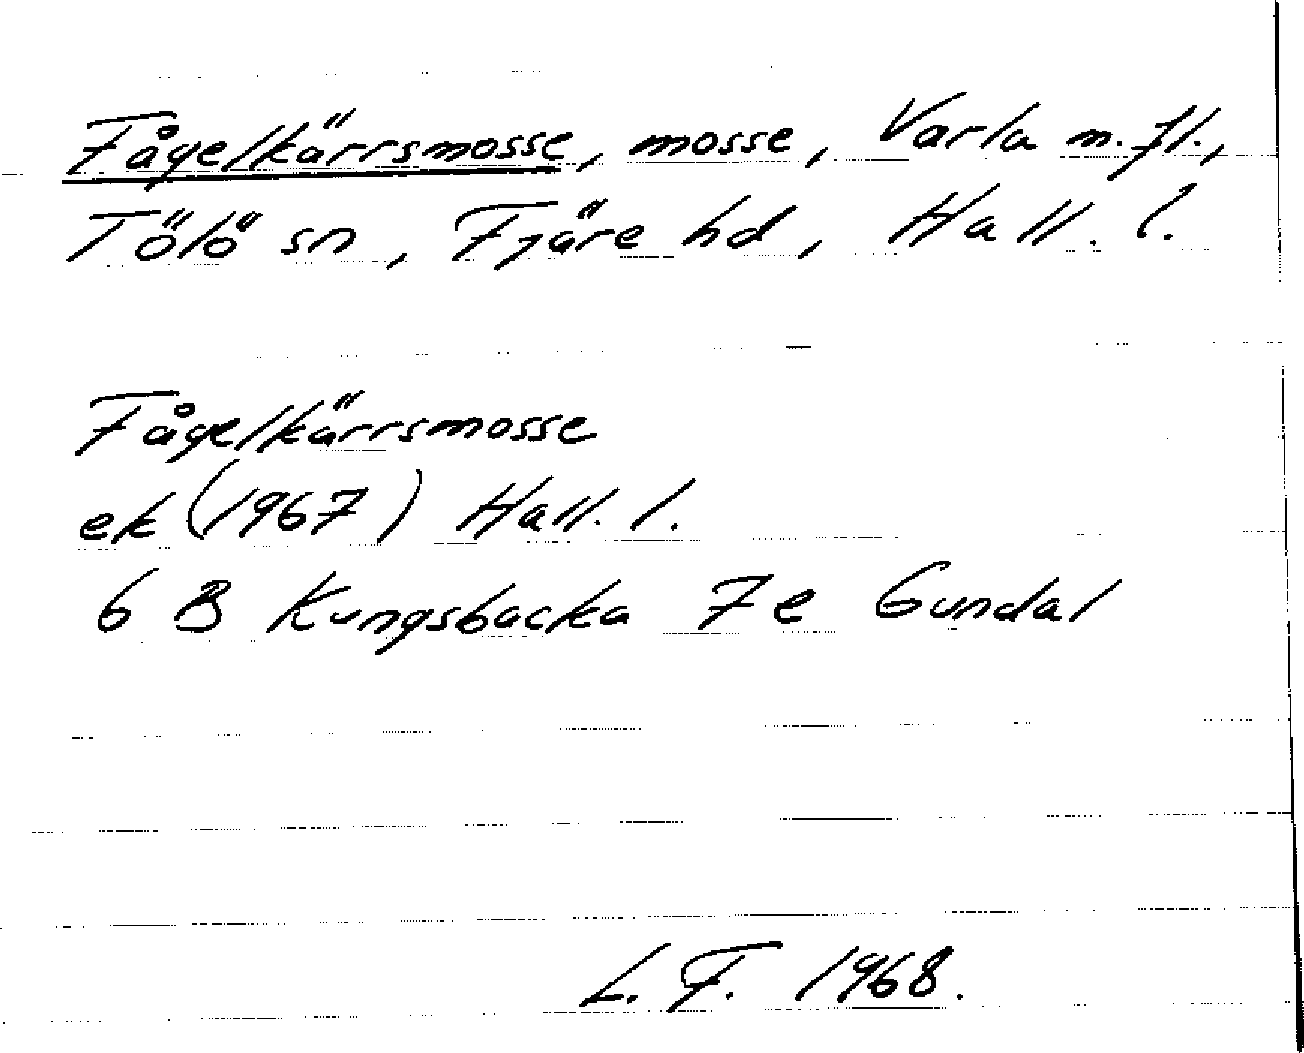 Fågelkärrsmosse, mosse, Varla m.fl.,
Tölö sn, Fjäre hd, Hall. l.
Fågelkärrsmosse
ek (1967) Hall. l.
6 B Kungsbacka 7 e Gundal
L. F. 1968.